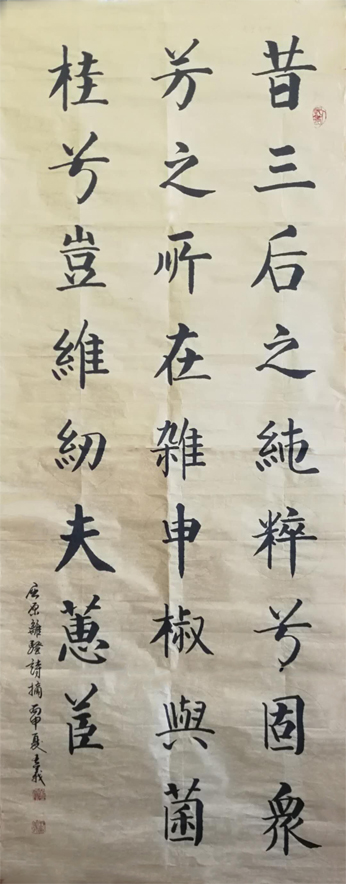 昔三后之純粹兮固衆
芳之所在雜申椒與菌
桂兮豈維紉夫蕙茝
屈原離騷詩摘丙申夏